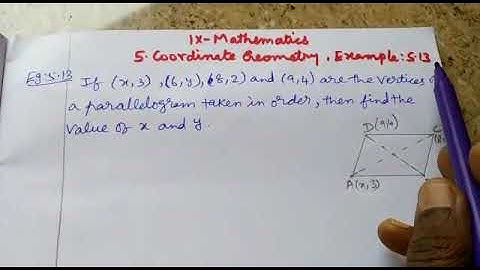 IX-Mathematics
5. Coordinate Geometry, Example: 5.13
Eg: 5.13 If (x,3), (6,y), (8,2) and (9,4) are the vertices
a parallelogram taken in order, then find the
value of x and y.
D(9,4) C
A(x,3)